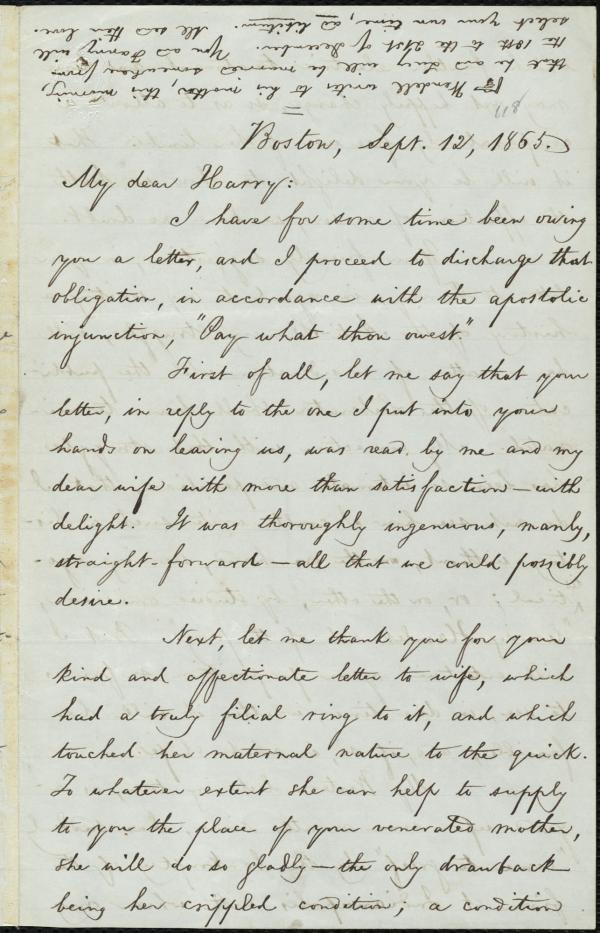 ☞ Wendell writes to his mother, this morning,
that he and Lucy will be married somewhere from
the 18th to the 21st of December. You and Fanny will
select your own time, ad libitum. All send their love.
Boston, Sept. 12, 1865.
My dear Harry:
I have for some time been owing
you a letter, and I proceed to discharge that
obligation, in accordance with the apostolic
injunction, "Pay what thou owest."
First of all, let me say that your
letter, in reply to the one I put into your
hands on leaving us, was read by me and my
dear wife with more than satisfaction—with
delight. It was thoroughly ingenuous, manly,
straight-forward—all that we could possibly
desire.
Next, let me thank you for your
kind and affectionate letter to wife, which
had a truly filial ring to it, and which
touched her maternal nature to the quick.
To whatever extent she can help to supply
to you the place of your venerated mother,
she will do so gladly—the only drawback
being her crippled condition; a condition